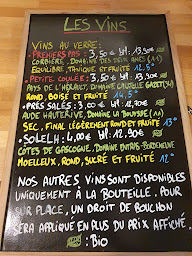 LES VINS
VINS AU VERRE:
- PREMIERS PAS: 3,50 € 13,30€
CORBIÈRE, DOMAINE DES DEUX ANES (11)
ÉQUILIBRÉ, TANIQUE ET FRUITÉ 12,5°
- PETITE COULÉE: 3,50 €
PAYS DE L'HÉRAULT, DOMAINE (34)
ROND, BOISÉ ET FRUITÉ 14,5°
- PRÈS SALÉS: 3,00 € 12,90€
AUDE HAUTERIVE, DOMAINE (11)
SEC, FINAL LÉGÈREMENT ROND ET FRUITÉ 13°
12,90€
CÔTES DE GASCOGNE, DOMAINE
MOELLEUX, ROND, SUCRÉ ET FRUITÉ 12°
NOS AUTRES VINS SONT DISPONIBLES
UNIQUEMENT À LA BOUTEILLE. POUR
SUR PLACE, UN DROIT DE BOUCHON
SERA APPLIQUÉ EN PLUS DU PRIX AFFICHÉ.
: Bio